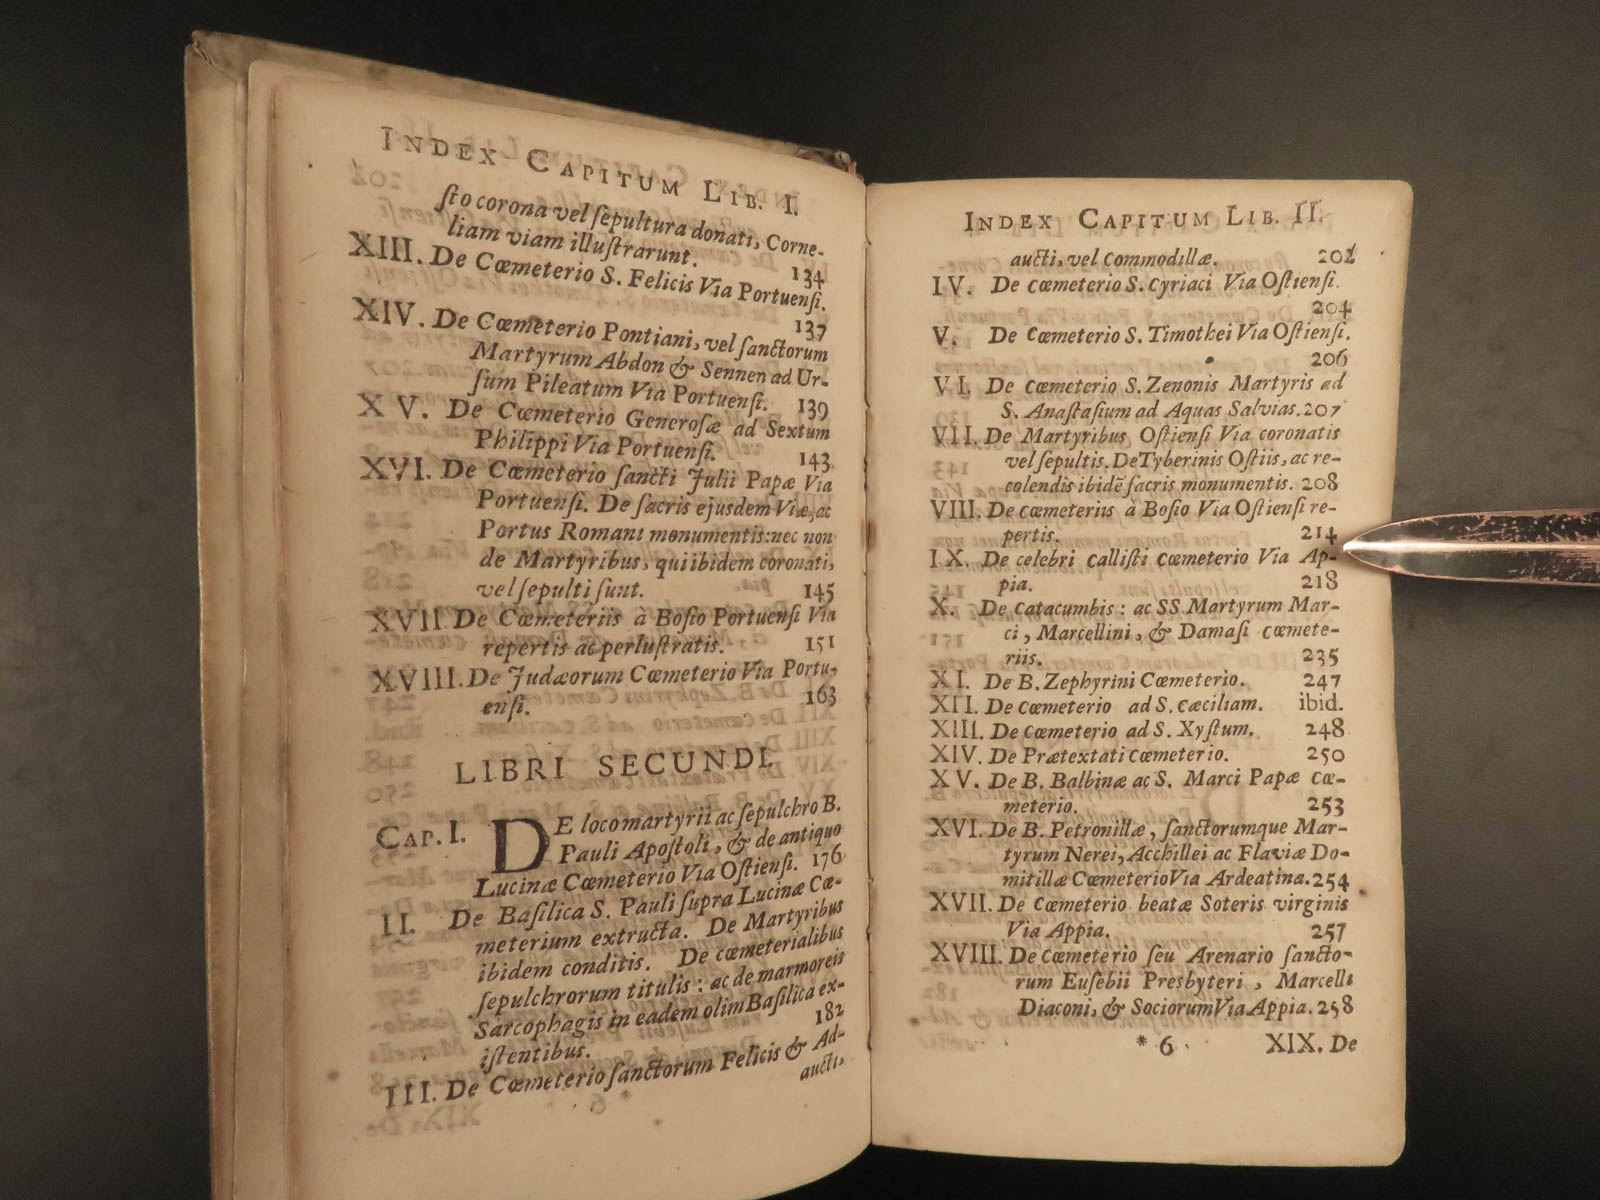 INDEX CAPITUM LIB. I.
ſto corona vel ſepultura donati, Corne-
liam viam illuſtrarunt. 134
XIII. De Cœmeterio S. Felicis Via Portuenſi.
137
XIV. De Cœmeterio Pontiani, vel ſanctorum
Martyrum Abdon & Sennen ad Ur-
ſum Pileatum Via Portuenſi. 139
XV. De Cœmeterio Generoſæ ad Sextum
Philippi Via Portuenſi. 143
XVI. De Cœmeterio ſancti Julii Papæ Via
Portuenſi. De ſacris ejusdem Viæ, ac
Portus Romani monumentis: nec non
de Martyribus, qui ibidem coronati,
vel ſepulti ſunt. 145
XVII. De Cœmeteriis à Boſio Portuenſi Via
repertis ac perluſtratis. 151
XVIII. De Judæorum Cœmeterio Via Portu-
enſi. 163
LIBRI SECUNDI.
CAP. I. DE loco martyrii ac ſepulchro B.
Pauli Apoſtoli, & de antiquo
Lucinæ Cœmeterio Via Oſtienſi. 176
II. De Baſilica S. Pauli ſupra Lucinæ Cœ-
meterium extructa. De Martyribus
ibidem conditis. De cœmeterialibus
ſepulchrorum titulis: ac de marmoreis
Sarcophagis in eadem olim Baſilica ex-
iſtentibus. 182
III. De Cœmeterio ſanctorum Felicis & Ad-
aucti,
INDEX CAPITUM LIB. II.
aucti, vel Commodillæ. 202
IV. De cœmeterio S. Cyriaci Via Oſtienſi.
204
V. De cœmeterio S. Timothei Via Oſtienſi.
206
VI. De cœmeterio S. Zenonis Martyris ad
S. Anaſtaſium ad Aquas Salvias. 207
VII. De Martyribus Oſtienſi Via coronatis
vel ſepultis. De Tyberinis Oſtiis, ac re-
colendis ibidē ſacris monumentis. 208
VIII. De cœmeteriis à Boſio Via Oſtienſi re-
pertis. 214
IX. De celebri Calliſti cœmeterio Via Ap-
pia. 218
X. De Catacumbis: ac SS. Martyrum Mar-
ci, Marcellini, & Damaſi cœmete-
riis. 235
XI. De B. Zephyrini Cœmeterio. 247
XII. De cœmeterio ad S. Cæciliam. ibid.
XIII. De cœmeterio ad S. Xyſtum. 248
XIV. De Prætextati cœmeterio. 250
XV. De B. Balbinæ ac S. Marci Papæ cœ-
meterio. 253
XVI. De B. Petronillæ, ſanctorumque Mar-
tyrum Nerei, Acchillei ac Flaviæ Do-
mitillæ Cœmeterio Via Ardeatina. 254
XVII. De Cœmeterio beatæ Soteris virginis
Via Appia. 257
XVIII. De cœmeterio ſeu Arenario ſancto-
rum Euſebii Presbyteri, Marcelli
Diaconi, & Sociorum Via Appia. 258
* 6 XIX. De